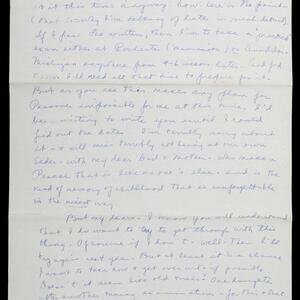 at this time anyway how
(that is why I'm talking of dates in such detail)
If I pass the written, then I'm to take a practical
exam either at Rochester (Minnesota) or Ann Arbor
Michigan anywhere from 4-6 weeks later. And God
knows I'll need all that time to prepare for it.
But as you see this makes any plan for
Passover impossible for me at this time. I'd
been waiting to write you until I could
find out the dates. I'm terribly sorry about
it - & will miss terribly not being at our own
Seder - with my dear Dad & Mother, who make a
Pesach that is like no one's else - and is the
kind of memory of childhood that is unforgettable
in the nicest way
But my dears - I know you will understand
that I do want to try to get through with this
thing. Of course if I don't - well - then I'll
try again next year. But at least it's a chance
I want to take now & get over with if possible
Doesn't it seem like old times? One daughter
after another